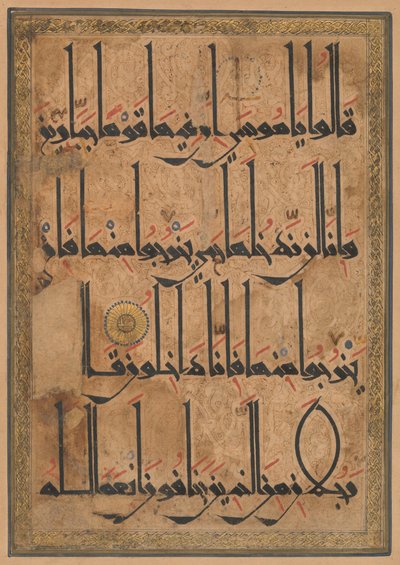 قالوا يا موسى إن فيها قوما جبارين
وإنا لن ندخلها حتى يخرجوا منها فإن
يخرجوا منها فإنا داخلون قال
رجلان من الذين يخافون أنعم الله